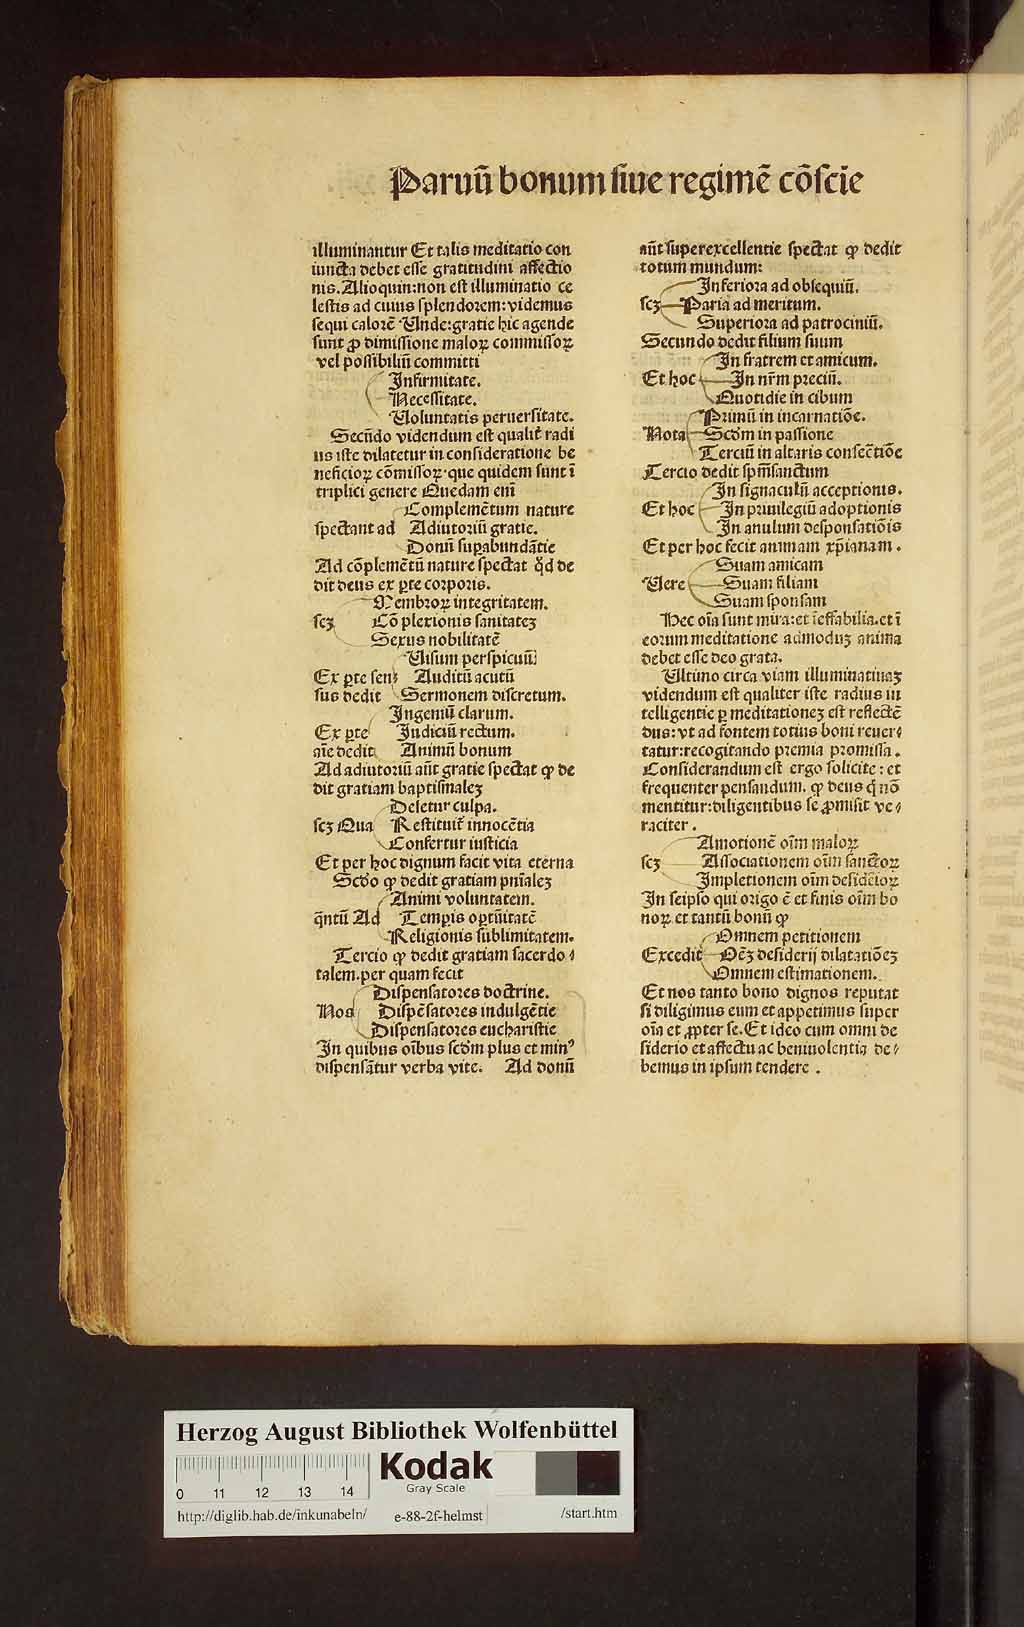 Paruū bonum siue regimē cōscie
illuminantur Et talis meditatio con
iuncta debet esse gratitudini affectio
nis. Alioquin: non est illuminatio ce
lestis ad cuius splendorem: videmus
sequi calorē Unde: gratie hic agende
sunt ꝓ dimissione maloꝝ commissoꝝ
vel possibiliū committi
Infirmitate.
Necessitate.
Uoluntatis peruersitate.
Secūdo videndum est qualit̄ radi
us iste dilatetur in consideratione be
neficioꝝ cōmissoꝝ · que quidem sunt ī
triplici genere Quedam eni̅
Complemētum nature
spectant ad Adiutoriū gratie.
Donū suꝑabundātie
Ad cōplemētū nature spectat qd̄ de
dit deus ex ꝑte corporis.
Membroꝝ integritatem.
scꝫ Cō plexionis sanitateꝫ
Sexus nobilitatē
Uisum perspicuū
Ex ꝑte sen⸗ Auditū acutū
sus dedit Sermonem discretum.
Ingeniū clarum.
Ex ꝑte Iudiciū rectum.
aīe dedit Animū bonum
Ad adiutoriū aūt gratie spectat ꝙ de
dit gratiam baptismaleꝫ
Deletur culpa.
scꝫ Qua Restituit̄ innocētia
Confertur iusticia
Et per hoc dignum facit vita eterna
Scd̄o ꝙ dedit gratiam pn̄ialeꝫ
Animi voluntatem.
q̄ntū Ad Temꝑis oꝑtūitatē
Religionis sublimitatem.
Tercio ꝙ dedit gratiam sacerdo⸗
talem. per quam fecit
Dispensatores doctrine.
Nos Dispēsatores indulgētie
Dispensatores eucharistie
In quibus oībus scd̄m plus et minꝰ
dispensātur verba vite. Ad donū
aūt superexcellentie spectat ꝙ dedit
totum mundum:
Inferiora ad obsequiū.
scꝫ Paria ad meritum.
Superiora ad patrociniū.
Secundo dedit filium suum
In fratrem et amicum.
Et hoc In nr̄m preciū.
Quotidie in cibum
Primū in incarnatiōe.
Nota Scd̄m in passione
Terciū in altaris consectiōe
Tercio dedit spm̄sanctum
In signaculū acceptionis.
Et hoc In priuilegiū adoptionis
In anulum desponsatiōis
Et per hoc fecit animam xp̄ianam.
Suam amicam
Uere Suam filiam
Suam sponsam
Hec oīa sunt mira: et īeffabilia. et ī
eorum meditatione admoduꝫ anima
debet esse deo grata.
Ultimo circa viam illuminatiuaꝫ
videndum est qualiter iste radius in
telligentie ꝑ meditationeꝫ est reflectē
dus: vt ad fontem totius boni reuer⸗
tatur: recogitando premia promissa.
Considerandum est ergo solicite: et
frequenter pensandum. ꝙ deus q̄ nō
mentitur: diligentibus se ꝓmisit ve⸗
raciter.
Amotionē oīm maloꝝ
scꝫ Associationem oīm sanctoꝝ
Impletionem oīm desiderioꝝ
In seipso qui origo ē et finis oīm bo
noꝝ et tantū bonū ꝙ
Omnem petitionem
Excedit Oēꝫ desiderij dilatatiōeꝫ
Omnem estimationem.
Et nos tanto bono dignos reputat
si diligimus eum et appetimus super
oīa et ꝓpter se. Et ideo cum omni de
siderio et affectu ac beniuolentia de⸗
bemus in ipsum tendere.
Herzog August Bibliothek Wolfenbüttel
Kodak
Gray Scale
0 11 12 13 14
http://diglib.hab.de/inkunabeln/ e-88-2f-helmst /start.htm